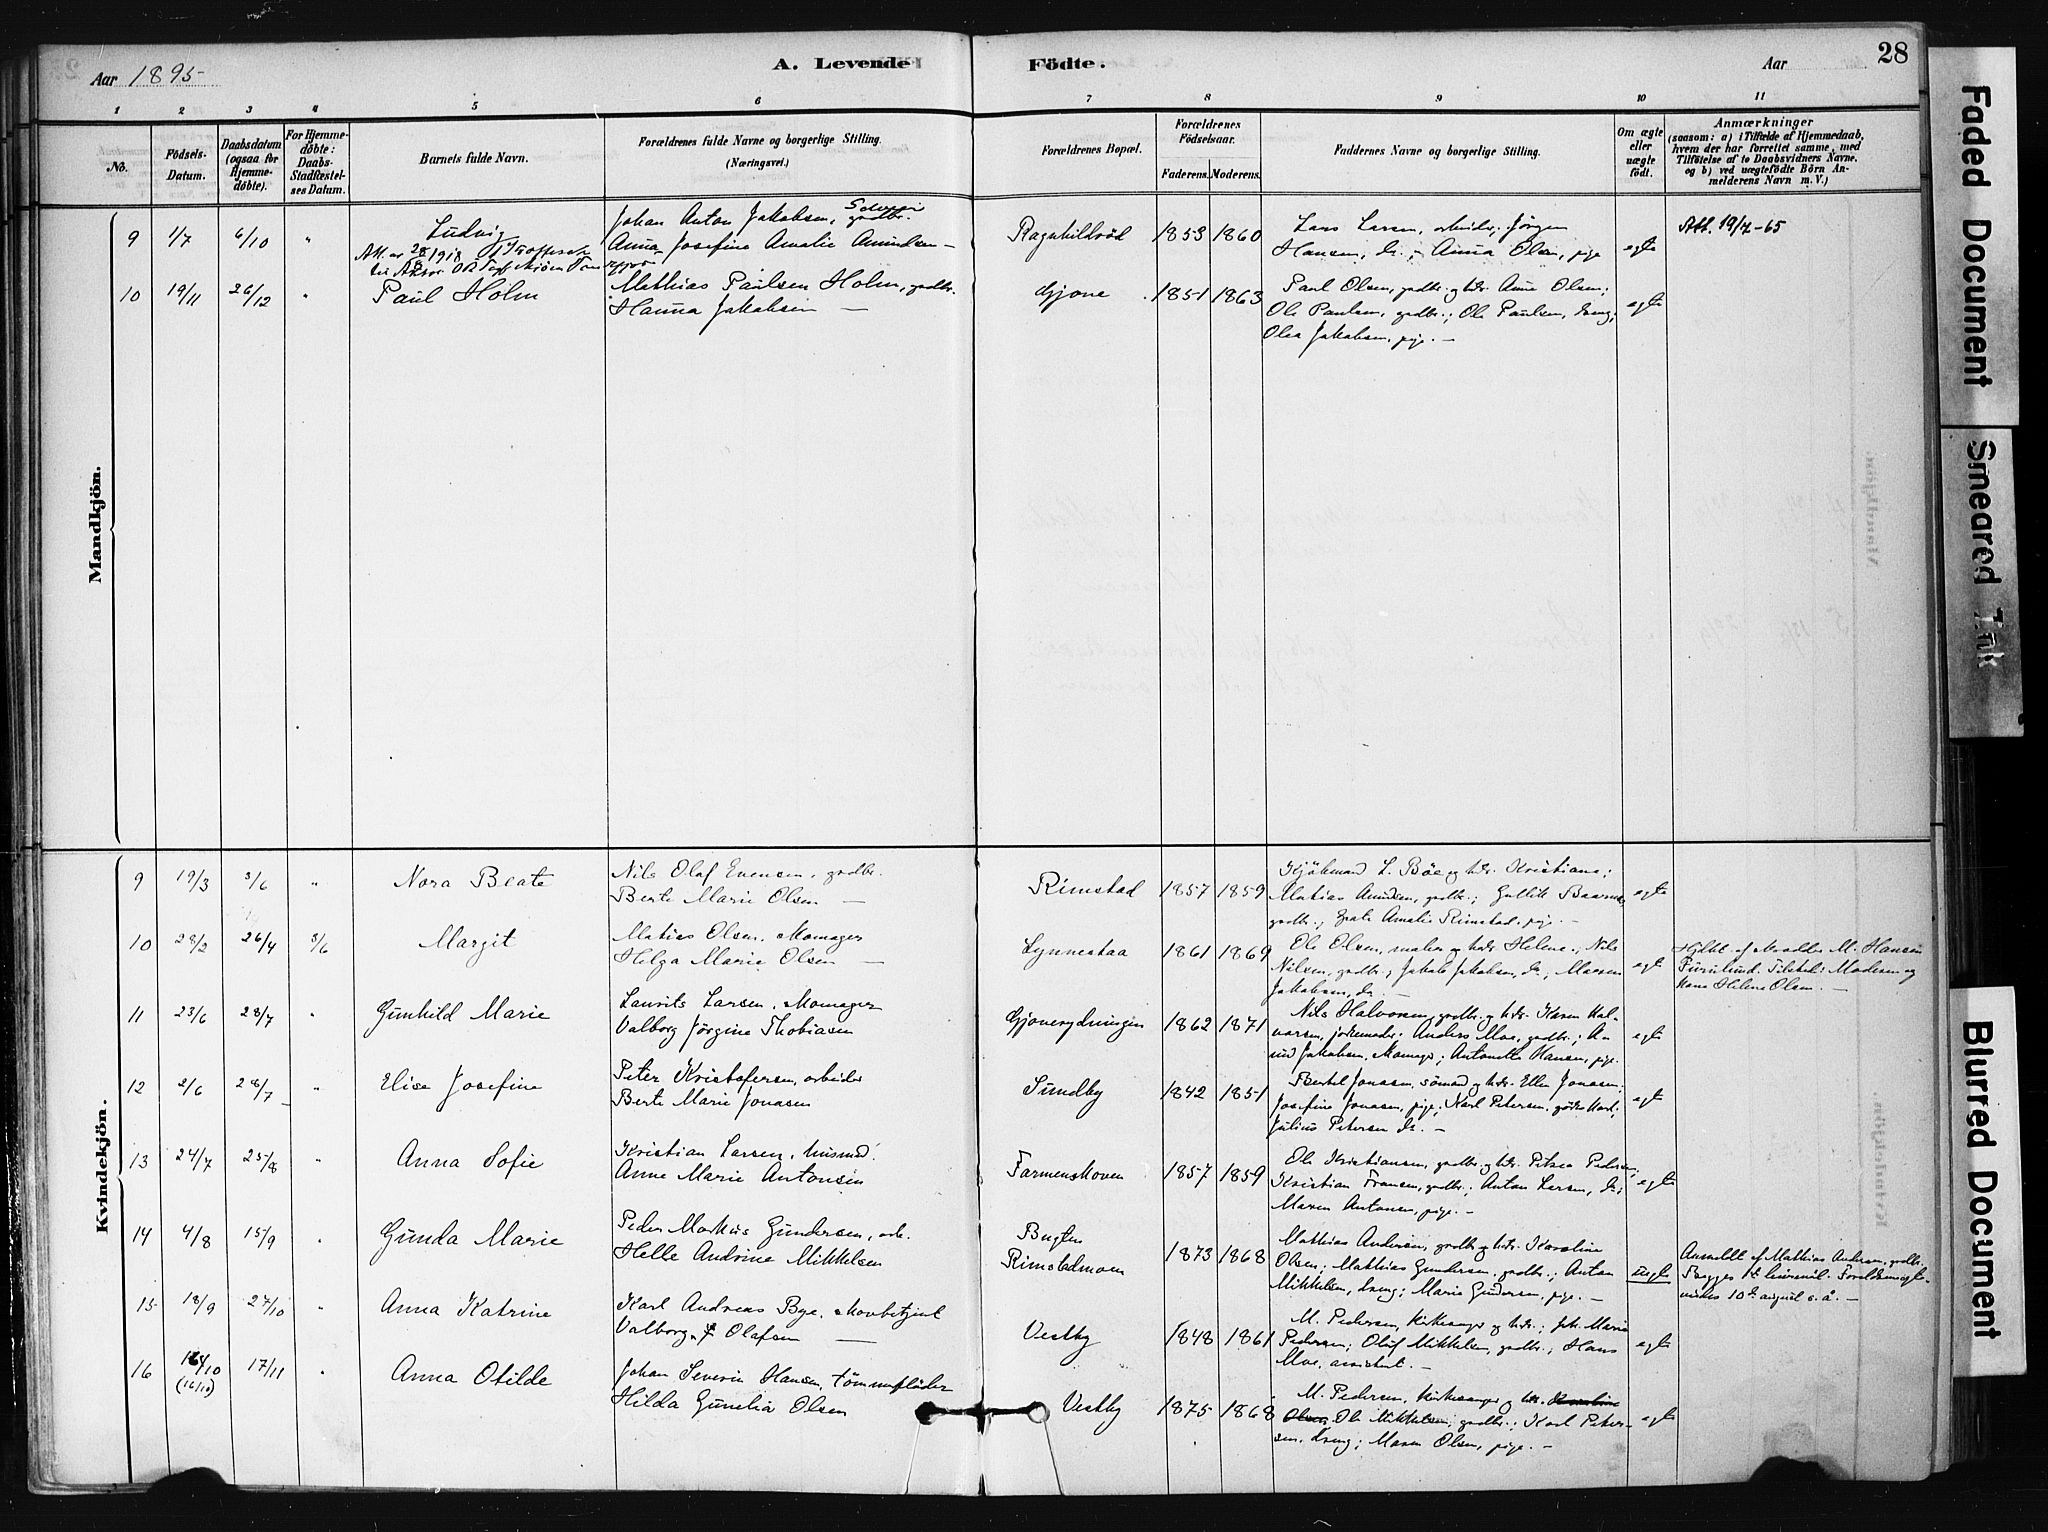 Aar 1895
A. Levende
Födte.
Aar
28
1 2 3 4 5 6 7 8 9 10 11
No.
Födsels-Datum.
Daabsdatum (ogsaa for Hjemme-döbte).
For Hjemme-döbte: Daabs-Stadfæstel-ses Datum.
Barnets fulde Navn.
Forældrenes fulde Navne og borgerlige Stilling.
(Næringsvei.)
Forældrenes Bopæl.
Forældrenes Födselsaar.
Faderens. Moderens.
Faddernes Navne og borgerlige Stilling.
Om ægte eller uægte födt.
Anmærkninger
(saasom: a) i Tilfælde af Hjemmedaab,
hvem der har forrettet samme, med
Tilföielse af to Daabsvidners Navne,
og b) ved uægtefödte Börn An-
melderens Navn m. V.)
Mandkjön.
9 1/7 6/10 " Ludvig
Johan Anton Jakobsen, gadbr.
Anna Josefine Amalie Amundsen
Ragnhildröd 1853 1860
Lars Larsen, arbeider; Jörgen
Hansen, do.; Anna Olsen, pige
egte
Att. 19/7-65
10 19/11 26/12 " Paul Holm
Mathias Paulsen Holm, gadbr.
Hanna Jakobsen —
Gjone 1851 1863
Paul Olsen, gadbr. og hdr. Anne Olsen;
Ole Paulsen, gadbr.; Ole Paulsen, dreng;
Olea Jakobsen, pige. —
egte
Kvindekjön.
9 19/3 3/6 " Nora Beate
Nils Olaf Evensen, gadbr.
Berte Marie Olsen —
Rimstad 1857 1859
Kjöbmand L. Böe og hdr. Kristiane;
Matias Amundsen, gadbr.; Gullik
gadbr.; Amalie Rimstad, pige. —
egte
10 28/2 26/4 3/6 Margit
Matias Olsen, skomager
Helga Marie Olsen —
Lynnestaa 1861 1869
Ole Olsen, maler og hdr. Helene; Nils
Nilsen, gadbr.; Jakob Jakobsen, do.; Maren
Jakobsen, do. —
egte
Hjdbt. af M. Hansen
Furulund. Tilsted: Moderen og
Helene Olsen. —
11 23/6 28/7 " Gunhild Marie
Laurits Larsen, skomager
Valborg Jörgine Thobiasen
Gjonerydningen 1862 1871
Nils Halvorsen, gadbr. og hdr. Karen Hal-
vorsen, jordemoder; Anders Moe, gadbr.; A-
und Jakobsen, skomager; Antonette Hansen, pige.
egte
12 2/6 28/7 " Elise Josefine
Peter Kristofersen, arbeider
Berte Marie Jonasen
Sundby 1842 1851
Bertel Jonasen, sömand og hdr. Ellen Jonasen;
Josefine Jonasen, pige; Karl Petersen,
Julius Petersen do. —
egte
13 24/7 25/8 " Anna Sofie
Kristian Larsen, husmd.
Anne Marie Antonsen
Farmenskoven 1857 1859
Ole Kristiansen, gadbr. og hdr. Petrea Pedersen;
Kristian Fransen, gadbr.; Anton Larsen, do.;
Maren Antonsen, pige. —
egte
14 4/8 15/9 " Gunda Marie
Peder Markus Gundersen, arb.
Helle Andrine Mikkelsen
Bugten
Rimstadmoen 1873 1868
Mathias Andersen, gadbr. og hdr. Karoline
Olsen; Mathias Gundersen, gadbr.; Anton
Mikkelsen, dreng; Marie Gundersen, pige. —
uegte
Anmeldt af Mathias Andersen, gadbr.
Begges 1ste leiermål. Foreldrene egte-
viedes 10de august s. å. —
15 18/9 27/10 " Anna Katrine
Karl Andreas Bye, skovbetjent
Valborg Olafsen —
Vestby 1848 1861
M. Pedersen, kirkesanger og hdr.; Joh. Marie
Pedersen; Oluf Mikkelsen, gadbr.; Hans
Moe, assistent. —
egte
16 16/10 (16/10) 17/11 " Anna Otilde
Johan Severin Hansen, tömmerfløder
Hilda Gunelia Olsen
Vestby 1875 1868
M. Pedersen, kirkesanger og hdr. Karoline
Olsen. Ole Mikkelsen, gadbr.; Karl Peter-
sen, dreng; Maren Olsen, pige. —
egte
Faded Document
Smeared Ink
Blurred Document